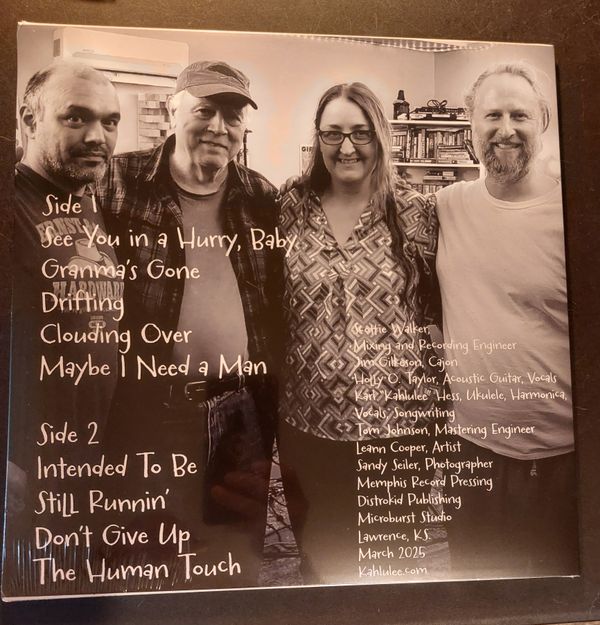 Side 1
See You in a Hurry, Baby
Granma's Gone
Drifting
Clouding Over
Maybe I Need a Man
Side 2
Intended To Be
Still Runnin'
Don't Give Up
The Human Touch
Scottie Walker,
Mixing and Recording Engineer
Jim Gilkeson, Cajon
Holly O. Taylor, Acoustic Guitar, Vocals
Karl "Kahlulee" Hess, Ukulele, Harmonica,
Vocals, Songwriting
Tom Johnson, Mastering Engineer
Leann Cooper, Artist
Sandy Seiler, Photographer
Memphis Record Pressing
Distrokid Publishing
Microburst Studio
Lawrence, KS.
March 2025
Kahlulee.com
HARDWARE